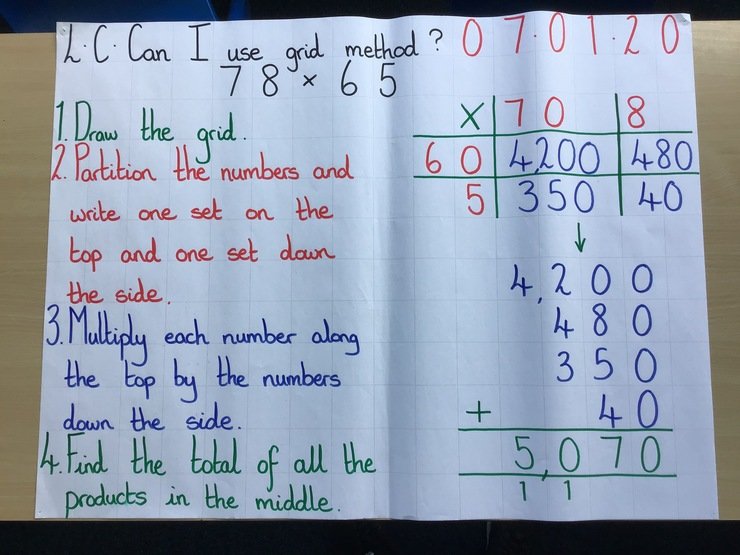 L.C. Can I use grid method? 07.01.20
78 × 65
1. Draw the grid.
2. Partition the numbers and
write one set on the
top and one set down
the side.
3. Multiply each number along
the top by the numbers
down the side.
4. Find the total of all the
products in the middle.
× 70 8
60 4,200 480
5 350 40
↓
4,200
480
350
+ 40
5,070
1 1